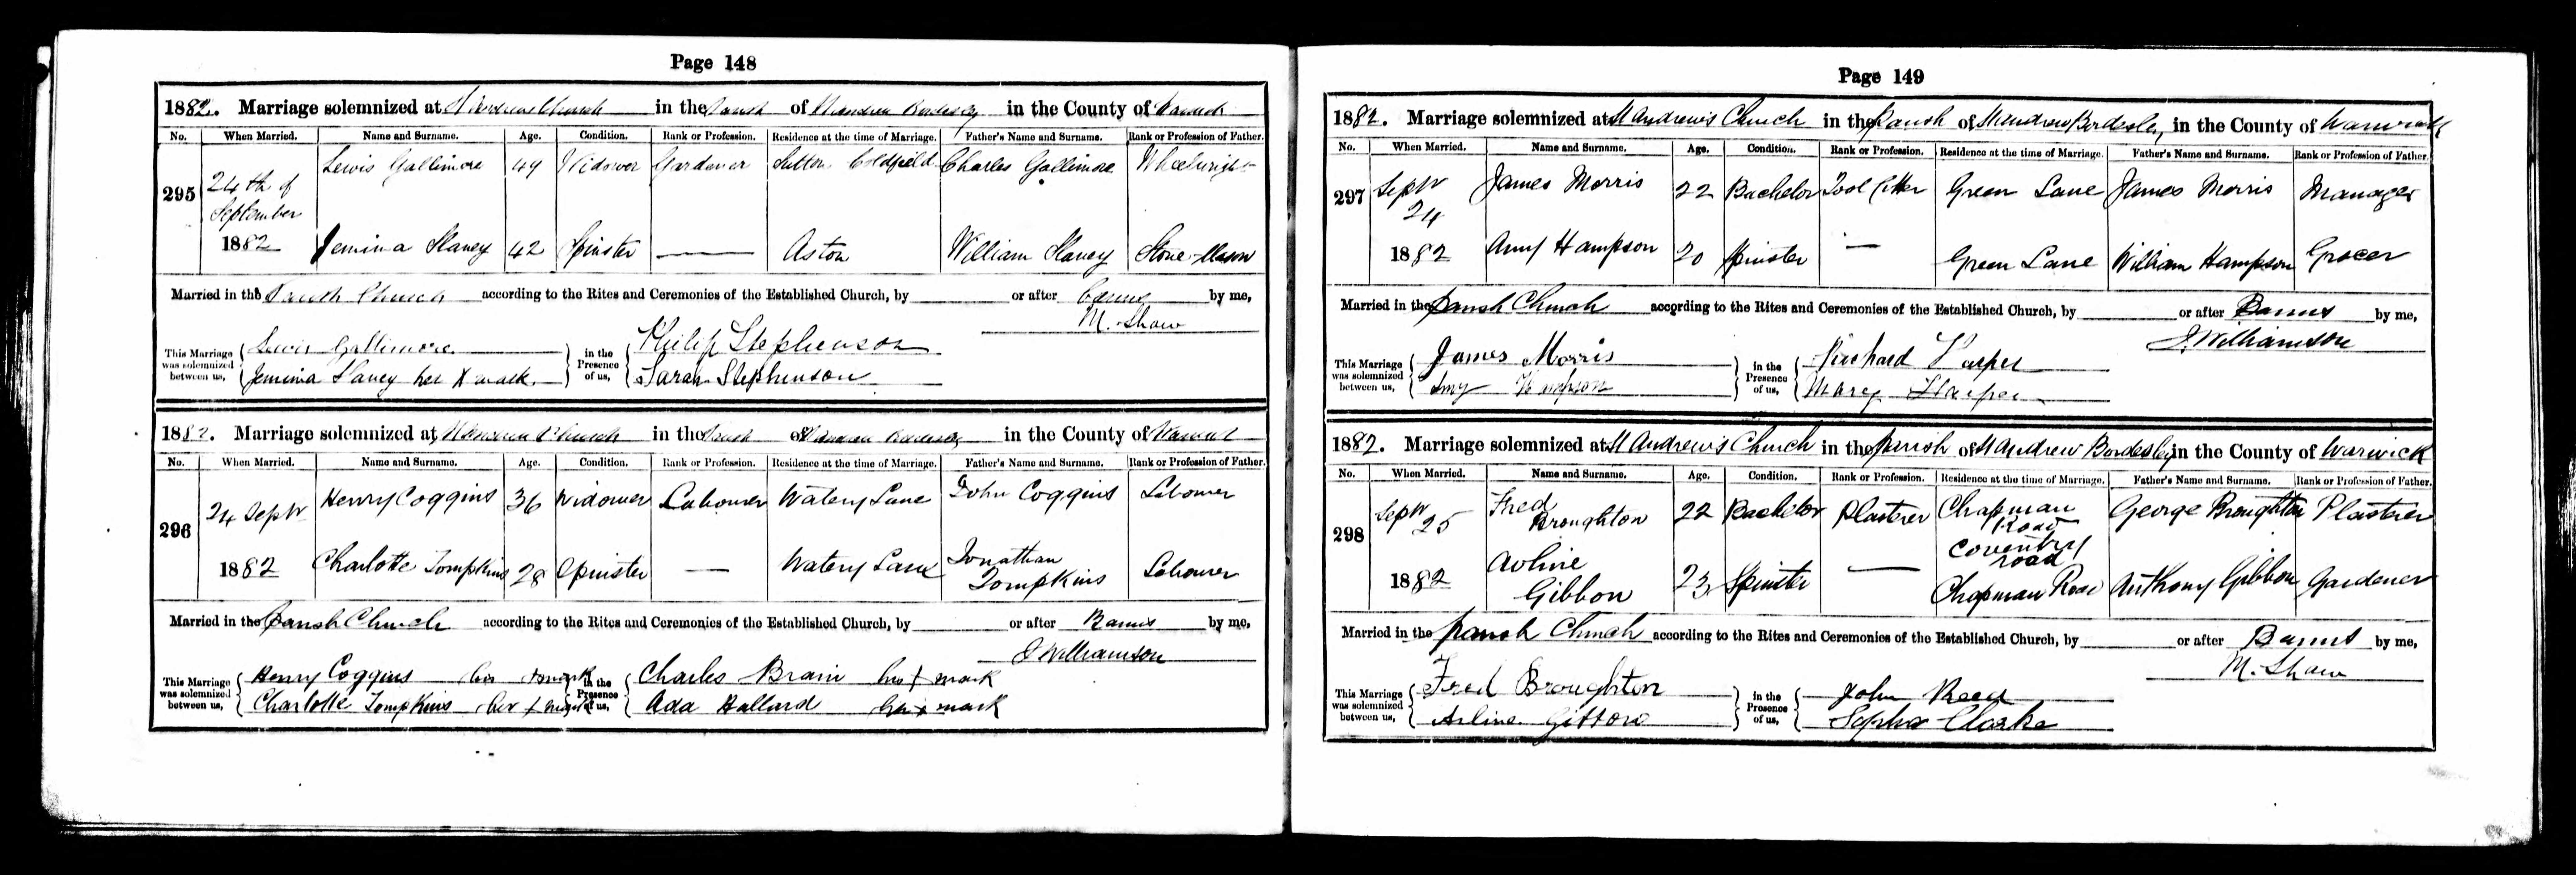 Page 148
1882. Marriage solemnized at St Andrews Church in the Parish of St Andrew Bordesley in the County of Warwick
No. When Married. Name and Surname. Age. Condition. Rank or Profession. Residence at the time of Marriage. Father's Name and Surname. Rank or Profession of Father.
295 24th of September 1882 Lewis Gallimore 49 Widower Gardener Sutton Coldfield Charles Gallimore Wheelwright
Jemima Slaney 42 Spinster — Aston William Slaney Stone-Mason
Married in the Parish Church according to the Rites and Ceremonies of the Established Church, by or after Banns by me,
M. Shaw
This Marriage was solemnized between us, Lewis Gallimore in the Presence of us, Philip Stephenson
Jemima Slaney her X mark Sarah Stephenson
1882. Marriage solemnized at St Andrew Church in the Parish of St Andrew Bordesley in the County of Warwick
No. When Married. Name and Surname. Age. Condition. Rank or Profession. Residence at the time of Marriage. Father's Name and Surname. Rank or Profession of Father.
296 24 Septr 1882 Henry Coggins 36 Widower Labourer Watery Lane John Coggins Labourer
Charlotte Tompkins 28 Spinster — Watery Lane Jonathan Tompkins Labourer
Married in the Parish Church according to the Rites and Ceremonies of the Established Church, by or after Banns by me,
J Williamson
This Marriage was solemnized between us, Henry Coggins his X mark in the Presence of us, Charles Brain his X mark
Charlotte Tompkins her X mark Ada Hallard her X mark
Page 149
1882. Marriage solemnized at St Andrew's Church in the Parish of St Andrew Bordesley in the County of Warwick
No. When Married. Name and Surname. Age. Condition. Rank or Profession. Residence at the time of Marriage. Father's Name and Surname. Rank or Profession of Father.
297 Septr 24 1882 James Morris 22 Bachelor Tool Cutter Green Lane James Morris Manager
Amy Hampson 20 Spinster — Green Lane William Hampson Grocer
Married in the Parish Church according to the Rites and Ceremonies of the Established Church, by or after Banns by me,
J. Williamson
This Marriage was solemnized between us, James Morris in the Presence of us, Richard Harper
Amy Hampson Mary Harper
1882. Marriage solemnized at St Andrew's Church in the Parish of St Andrew Bordesley in the County of Warwick
No. When Married. Name and Surname. Age. Condition. Rank or Profession. Residence at the time of Marriage. Father's Name and Surname. Rank or Profession of Father.
298 Septr 25 1882 Fred Broughton 22 Bachelor Plasterer Chapman Road Coventry road George Broughton Plasterer
Avline Gibbon 23 Spinster — Chapman Road Anthony Gibbon Gardener
Married in the Parish Church according to the Rites and Ceremonies of the Established Church, by or after Banns by me,
M. Shaw
This Marriage was solemnized between us, Fred Broughton in the Presence of us, John Reed
Gibbon Clarke